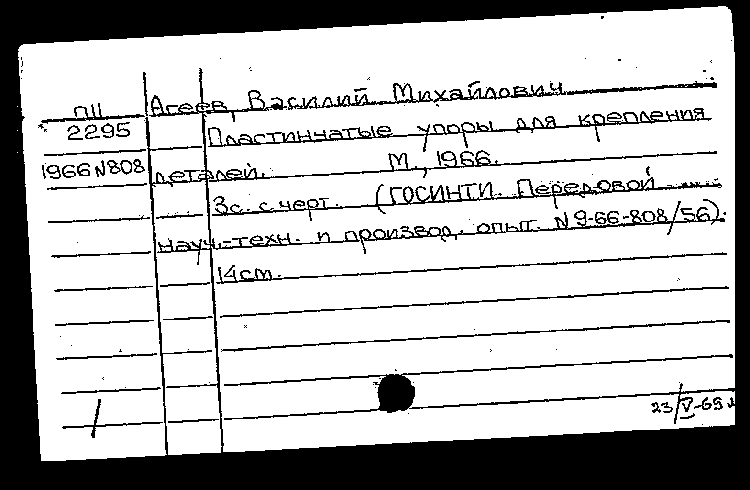 П11 Агеев, Василий Михайлович
2295 Пластинчатые упоры для крепления
1966 N808 деталей. М., 1966.
3с. с черт. (ГОСИНТИ. Передовой
науч.-техн. и производ. опыт. N 9-66-808/56).
14см.
23/V-69